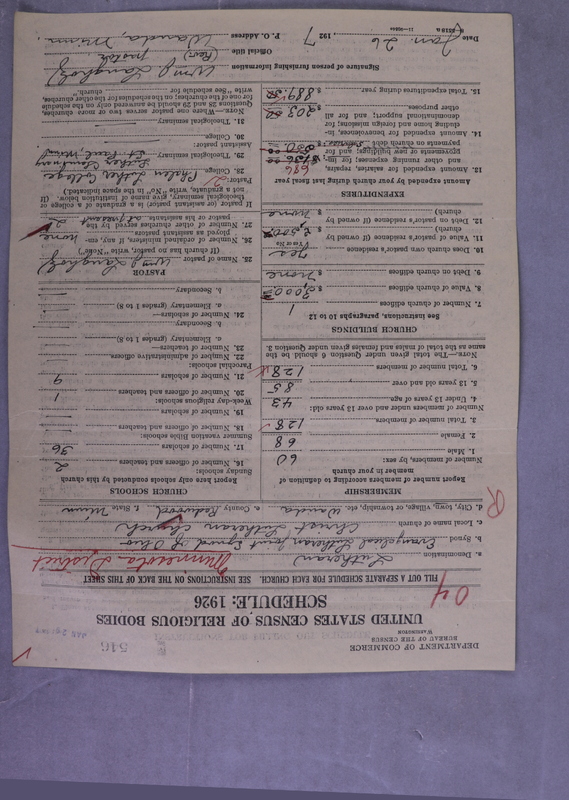 546
DEPARTMENT OF COMMERCE
BUREAU OF THE CENSUS
WASHINGTON
UNITED STATES CENSUS OF RELIGIOUS BODIES
SCHEDULE: 1926
04
FILL OUT A SEPARATE SCHEDULE FOR EACH CHURCH. SEE INSTRUCTIONS ON THE BACK OF THIS SHEET
Minnesota District
a. Denomination Lutheran
b. Synod Evangelical Lutheran Joint Synod of Ohio
c. Local name of church Christ Lutheran Church
d. City, town, village, or township, etc. Wanda e. County Redwood f. State Minn
R
MEMBERSHIP
Report number of members according to definition of
member in your church
Number of members, by sex:
1. Male 60
2. Female 68
3. Total number of members. 128
Number of members under and over 13 years old:
4. Under 13 years of age. 43
5. 13 years old and over 85
6. Total number of members 128
NOTE.—The total given under Question 6 should be the
same as the total of males and females given under Question 3.
CHURCH BUILDINGS
See instructions, paragraphs 10 to 12
7. Number of church edifices 1
8. Value of church edifices $ 3,000
9. Debt on church edifices $ none
10. Does church own pastor's residence Yes
(Yes or No)
11. Value of pastor's residence (if owned by
church)
12. Debt on pastor's residence (if owned by
church) $ none
EXPENDITURES
Amount expended by your church during last fiscal year
13. Amount expended for salaries, repairs,
and other running expenses; for im-
provements or new buildings; and for
payments on church debt
686
14. Amount expended for benevolences, in-
cluding home and foreign missions; for
denominational support; and for all
other purposes. $ 203
15. Total expenditures during year. $ 889
CHURCH SCHOOLS
Report here only schools conducted by this church
Sunday schools:
16. Number of officers and teachers 2
17. Number of scholars 36
Summer vacation Bible schools:
18. Number of officers and teachers
19. Number of scholars
Week-day religious schools:
20. Number of officers and teachers 1
21. Number of scholars 9
Parochial schools:
22. Number of administrative officers
23. Number of teachers—
a. Elementary (grades 1 to 8)
b. Secondary
24. Number of scholars—
a. Elementary (grades 1 to 8)
b. Secondary
PASTOR
25. Name of pastor Wm J Langholz
(If church has no pastor, write "No")
26. Number of ordained ministers, if any, em-
ployed as assistant pastors none
27. Number of other churches served by the
pastor or his assistants. at present 2
If pastor (or assistant pastor) is a graduate of a college or
theological seminary, give name of institution below. (If
not a graduate, write "No" in the space indicated.)
Pastor: 2
28. College Phalen Luther College
29. Theological seminary Luther Seminary
St. Paul, Minn
Assistant pastor:
30. College
31. Theological seminary
NOTE.—Where one pastor serves two or more churches,
Questions 28 and 29 should be answered only on the schedule
for one of the churches; on the schedules for the other churches,
write "See schedule for church."
Signature of person furnishing information Wm J Langholz
Official title (Rev) pastor
Date Jan. 26, 1927 P. O. Address Wanda, Minn.